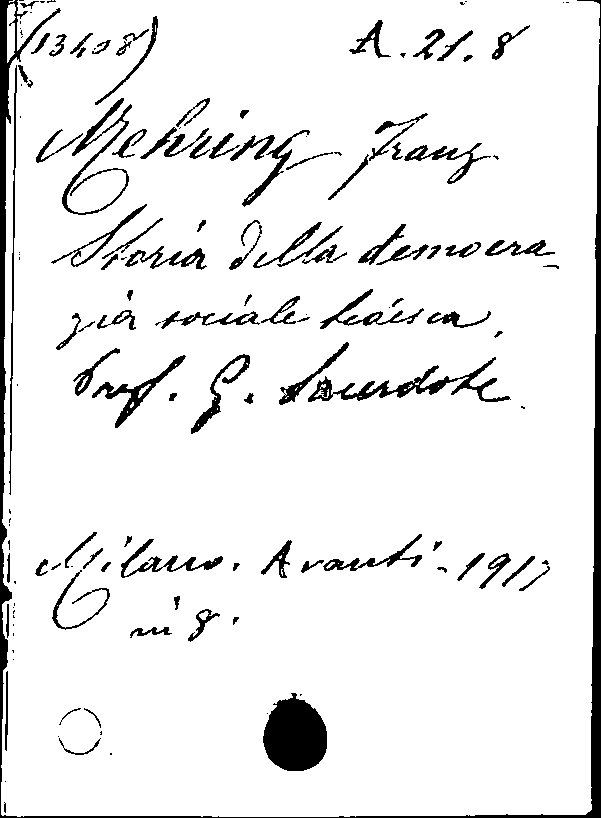 (13408) A. 21. 8
Mehring Franz
Storia della democra-
zia sociale tedesca,
Prof. G. Sacerdote
Milano. Avanti - 1917
in 8.